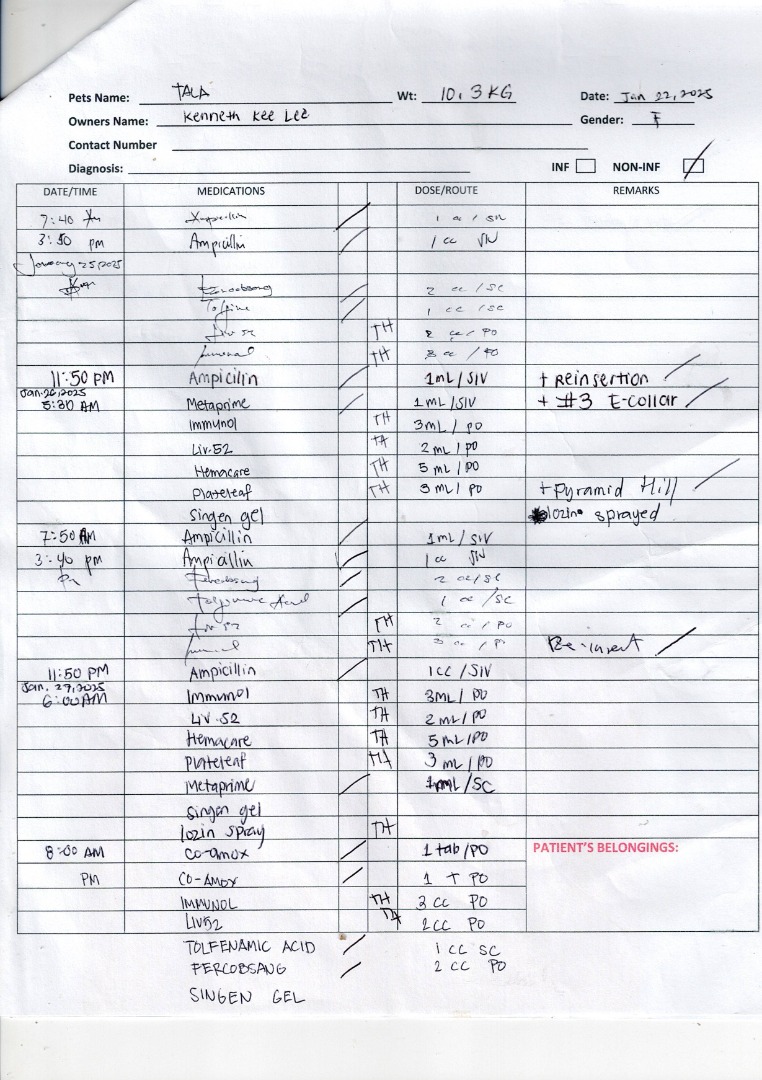 Pets Name: TALA Wt: 10.3 KG Date: Jan 22, 2025
Owners Name: Kenneth Kee Lee Gender: F
Contact Number
Diagnosis: INF NON-INF
DATE/TIME MEDICATIONS DOSE/ROUTE REMARKS
7:40 1 cc / SIV
3:50 pm Ampicillin 1 cc SIV
January 25, 2025
2 cc / SC
1 cc / SC
Liv 52 TH 2 cc / PO
TH 3 cc / PO
11:50 PM Ampicilin 1mL / SIV + Reinsertion
Jan. 26, 2025
5:30 AM Metaprime 1mL / SIV + #3 E-collar
Immunol TH 3mL / PO
Liv.52 TH 2mL / PO
Hemacare TH 5mL / PO
Plateleaf TH 3mL / PO + Pyramid Hill
Singen gel lozin sprayed
7:50 AM Ampicillin 1mL / SIV
3:40 pm Ampicillin 1 cc SIV
Fercobsang 2 cc / SC
Tolfenamic Acid 1 cc / SC
Liv 52 TH 2 cc / PO
TH 3 cc / PO Re-insert
11:50 PM Ampicillin 1CC / SIV
Jan. 27, 2025
6:00 AM Immunol TH 3mL / PO
LIV.52 TH 2mL / PO
Hemacare TH 5mL / PO
Plateleaf TH 3mL / PO
Metaprime 1mL / SC
Singen gel
lozin spray TH
8:00 AM Co-amox 1 tab / PO PATIENT'S BELONGINGS:
PM CO-AMOX 1 T PO
IMMUNOL TH 3 CC PO
LIV52 TH 2 CC PO
TOLFENAMIC ACID 1 CC SC
FERCOBSANG 2 CC PO
SINGEN GEL